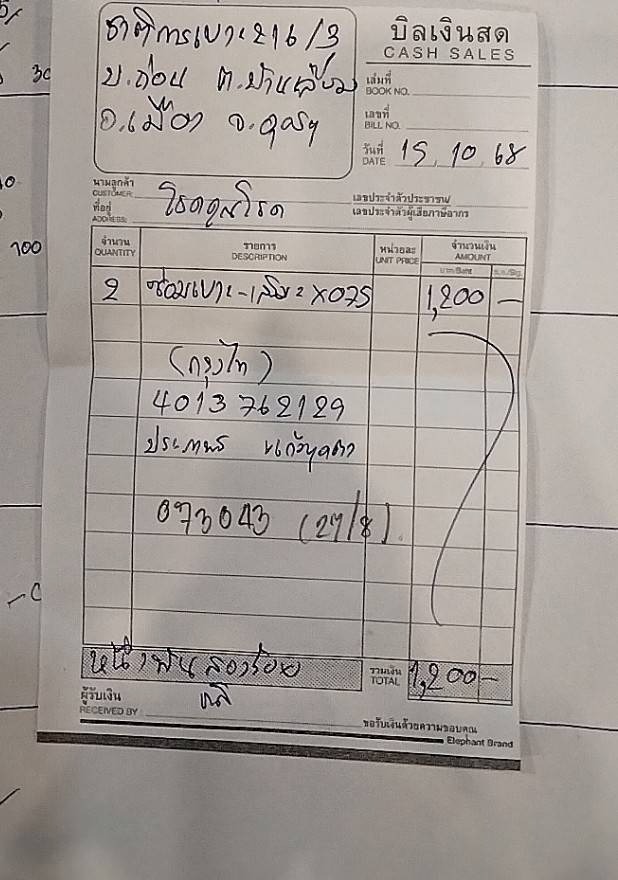 ชาติการเบาะ 216/3
บ.ถ่อน ต.บ้านเลื่อม
อ.เมือง จ.อุดรฯ
บิลเงินสด
CASH SALES
เล่มที่
BOOK NO.
เลขที่
BILL NO.
วันที่
DATE 15, 10, 68
นามลูกค้า
CUSTOMER โรดดูลโรด
ที่อยู่
ADDRESS
เลขประจำตัวประชาชน/
เลขประจำตัวผู้เสียภาษีอากร
จำนวน รายการ หน่วยละ จำนวนเงิน
QUANTITY DESCRIPTION UNIT PRICE AMOUNT
บาท/Baht ส.ต./Stg.
2 ซ่อมเบาะ - X075 1,200 —
(กรุงไทย)
4013762129
ประภาพร
073043 (27/8)
หนึ่งพันสองร้อย รวมเงิน
TOTAL 1,200 —
ผู้รับเงิน
RECEIVED BY
ขอรับเงินด้วยความขอบคุณ
Elephant Brand
30
100